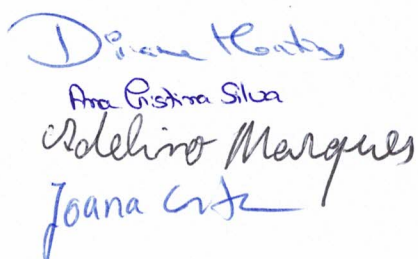 Diana Martins
Ana Cristina Silva
Adelino Marques
Joana